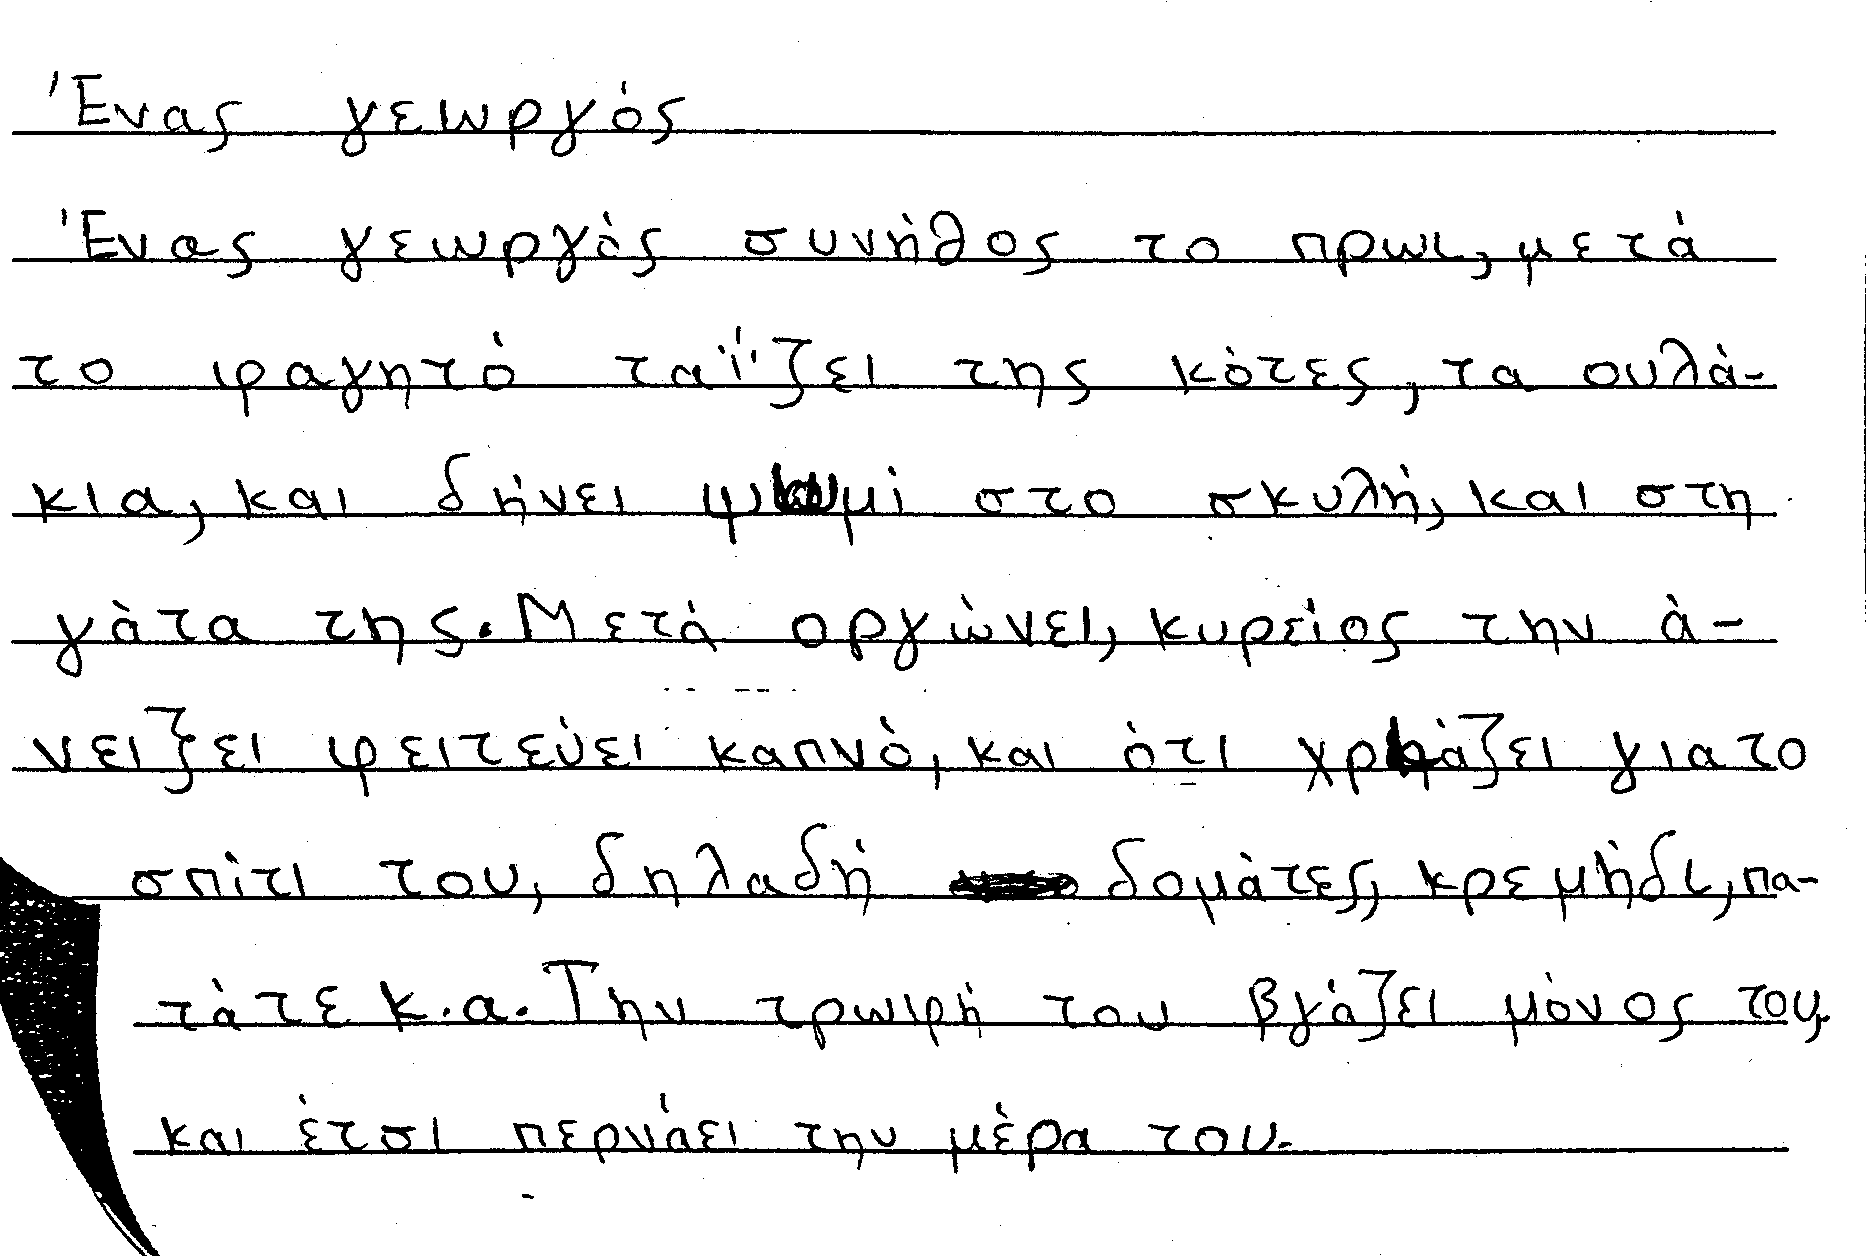 Ένας γεωργός
Ένας γεωργός συνήθος το πρωι, μετά
το φαγητό ταΐζει της κότες, τα ουλά-
κια, και δήνει ψωμί στο σκυλή, και στη
γάτα της. Μετά οργώνει, κυρείος την ά-
νειξει φειτεύει καπνό, και ότι χρηάζει γιατο
σπίτι του, δηλαδή δομάτες, κρεμήδι, πα-
τάτε κ.α. Την τρωφή του βγάζει μόνος του,
και έτσι περνάει την μέρα του.